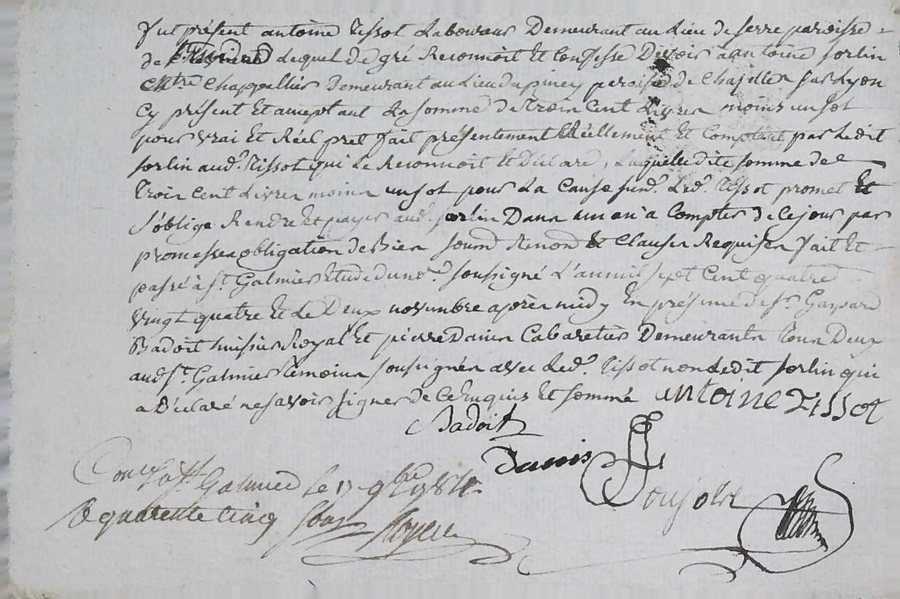 fut présent antoine Tissot Laboureur Demeurant au Lieu de serre paroisse
de Lequel de gré Reconnoit Et Confesse Devoir a antoine sorlin
Mtre Chappellier Demeurant au Lieu du piney paroisse de Chazelles sur Lyon
Cy présent Et acceptant La somme de Troin Cent Livres moins un sol
pour vrai Et Réel pret fait présentement Réellement Et Comptant par Ledit
sorlin aud. Tissot qui Le Reconnoit Et Déclare, Laquelle dite somme de
Troin Cent Livres moins un sol pour La Cause susd. Led. Tissot promet Et
s'oblige Rendre Et payer aud. sorlin Dans un an a Compter de Ce jour par
promesses obligation de Bien soumd Renond & Clauses Requises fait Et
passé à St. Galmier Etude du nre. soussigné L'an mil sept Cent quatre
vingt quatre Et Le Deux novembre après midy En présence de sr Gaspard
Badoit huissier Royal Et pierre Danis Cabaretier Demeurants Tous Deux
aud. St. Galmier Témoins soussignés avec Led. Tissot non Ledit sorlin qui
a Déclaré ne savoir signer de Ce Requis Et sommé antoine Tissot
Badoit
Danis
Poujolx
Conlé a St Galmier Le 13 9bre 1784
R quarente cinq sous